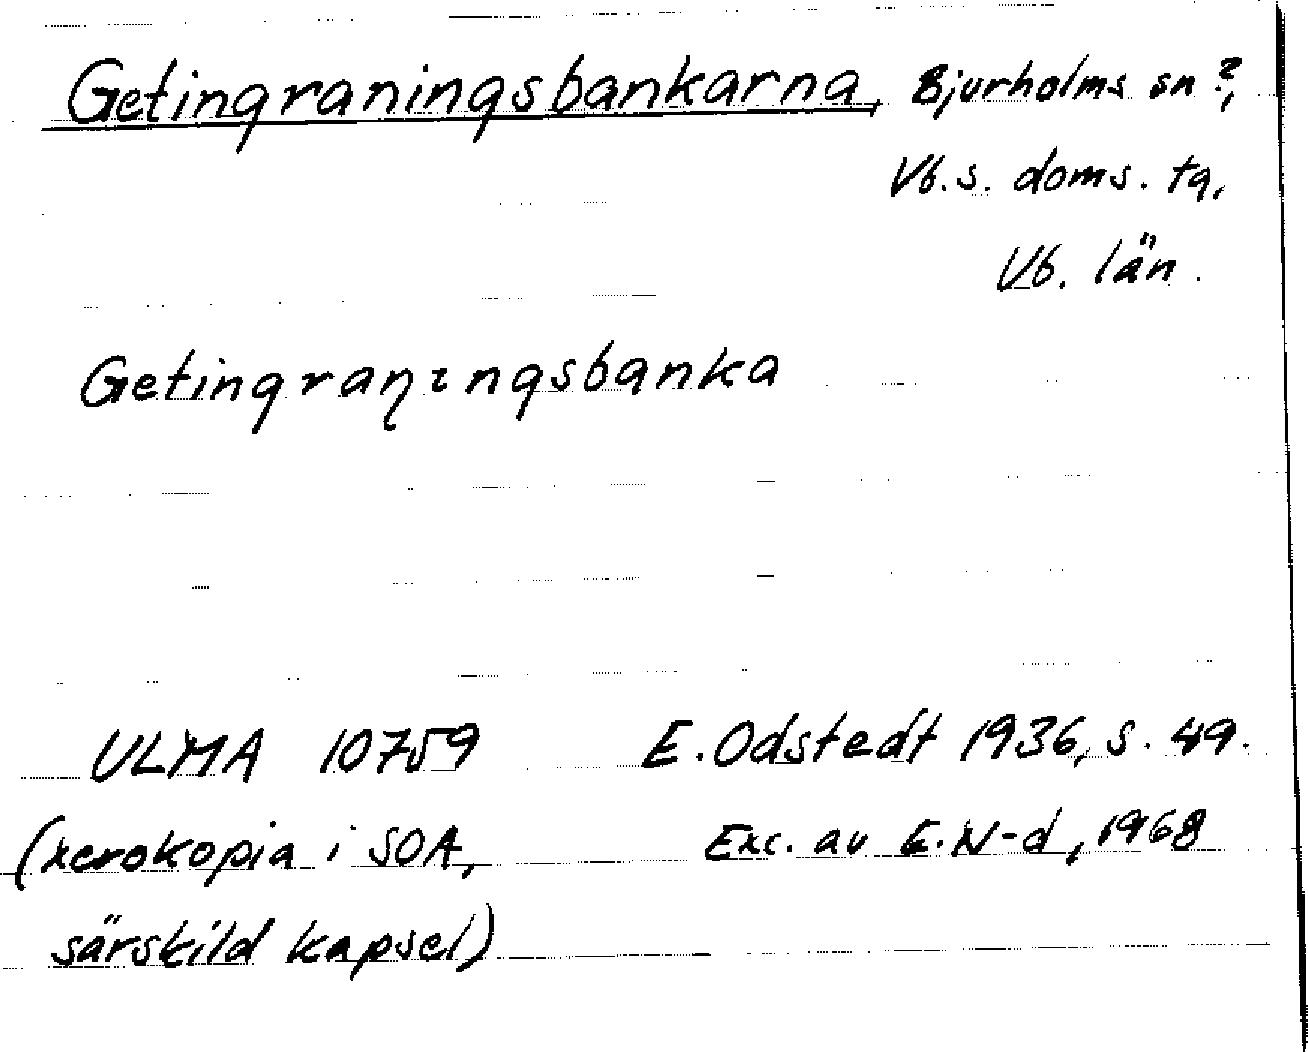 Getingraningsbankarna, Bjurholms sn?,
Vb.s. doms. tg,
Vb. län.
Getingraŋɩngsbanka
ULMA 10759 E. Odstedt 1936, s. 49.
(xerokopia i SOA, Exc. av E. N-d, 1968
särskild kapsel)